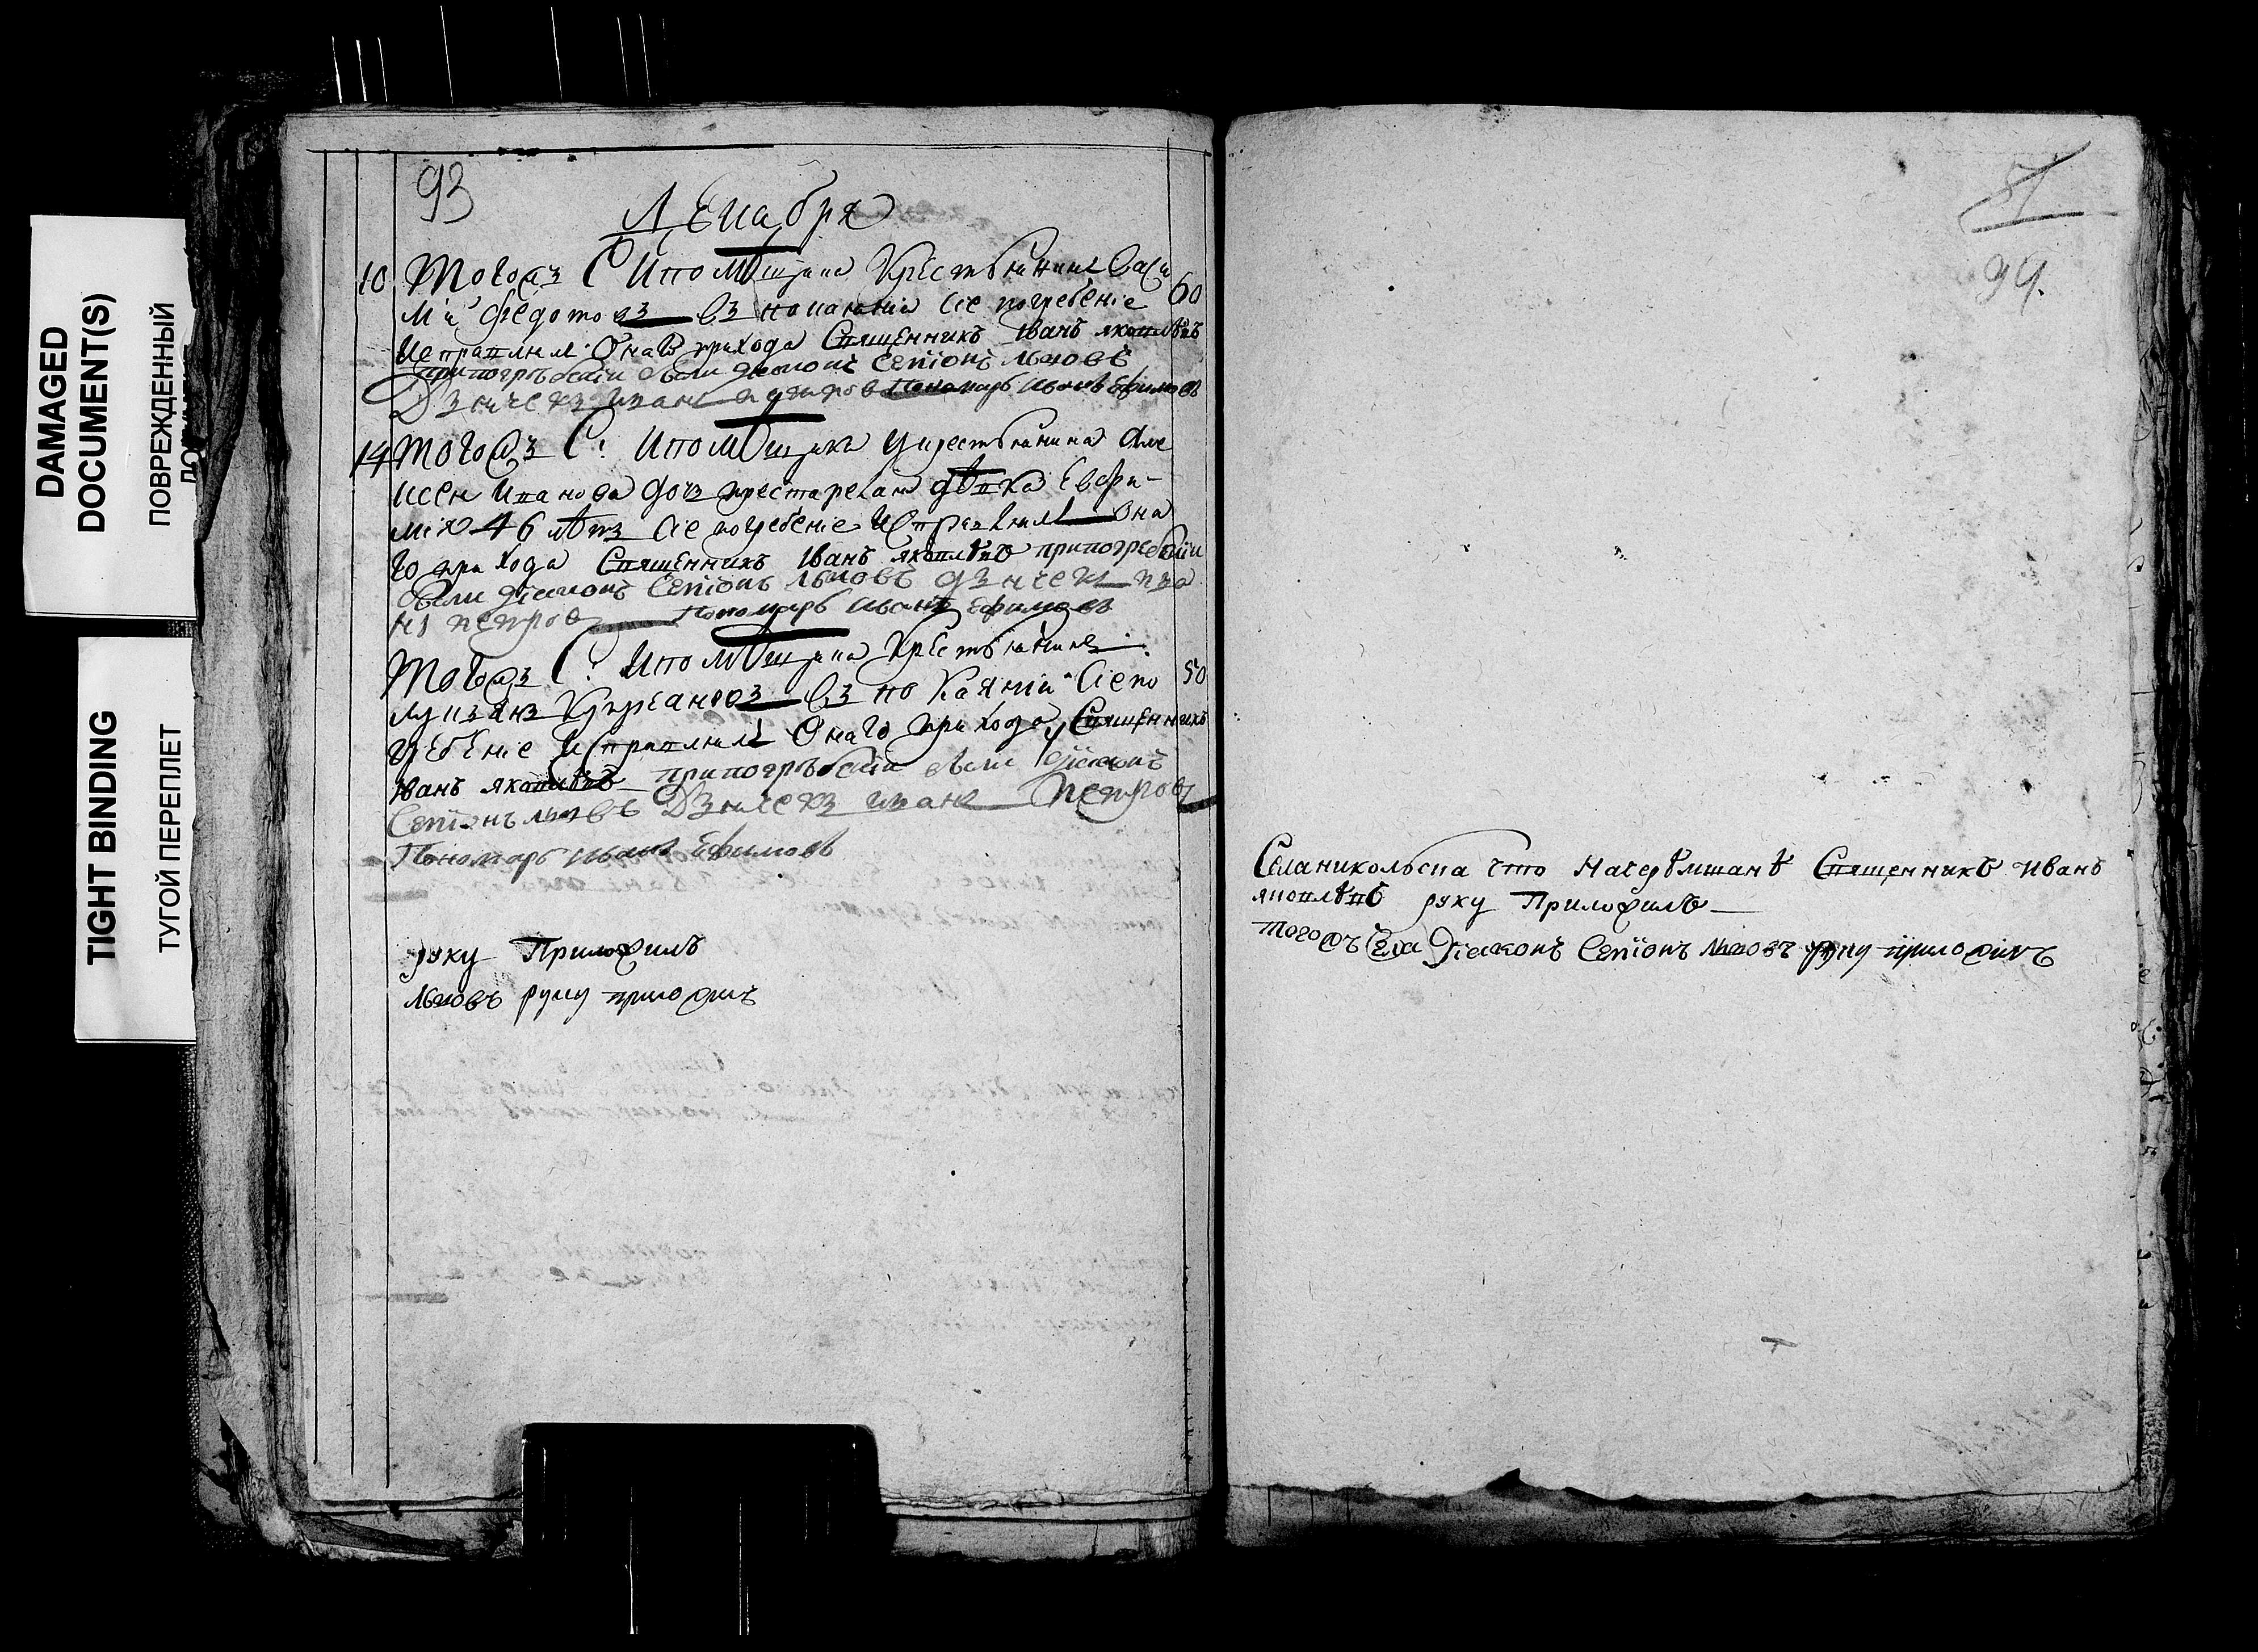 DAMAGED
DOCUMENT(S)
ПОВРЕЖДЕННЫЙ
TIGHT BINDING
ТУГОЙ ПЕРЕПЛЕТ
93
Декабря
10 Тогожъ С ипомѣщика крестьянинъ Васи 60
лий Федотовъ въ покаянии сие погребение
исправлял онаго прихода Священникъ Иванъ Яковлевъ
при погребении были диаконъ Семионъ Львовъ
Дьячекъ Иван Петров Пономарь Иванъ Ефимовъ
14 Тогожъ С: ипомѣщика у крестьянина Але
ксея Иванова дочъ престарелая дѣвка Евфи-
мия 46 лѣтъ сие погребение исправлял она
го прихода Священникъ Иванъ Яковлевъ при погребении
были диаконъ Семионъ Львовъ дьячекъ Ива
нъ Петров Пономарь Иванъ Ефимовъ
Тогожъ С: ипомѣщика крестьянинъ 50
Лукьянъ Кирсановъ въ покаянии Сие по
гребение исправлялъ онаго прихода Священникъ
Иванъ Яковлевъ при погребении были диаконъ
Семионъ Львовъ Дьячекъ Иван Петровъ
Пономарь Иванъ Ефимовъ
руку Приложилъ
Львовъ руку приложилъ
51
99.
Села Никольска что На Священникъ Иванъ
Яковлевъ руку Приложилъ
Тогожъ Села Диаконъ Семионъ Львовъ руку приложилъ